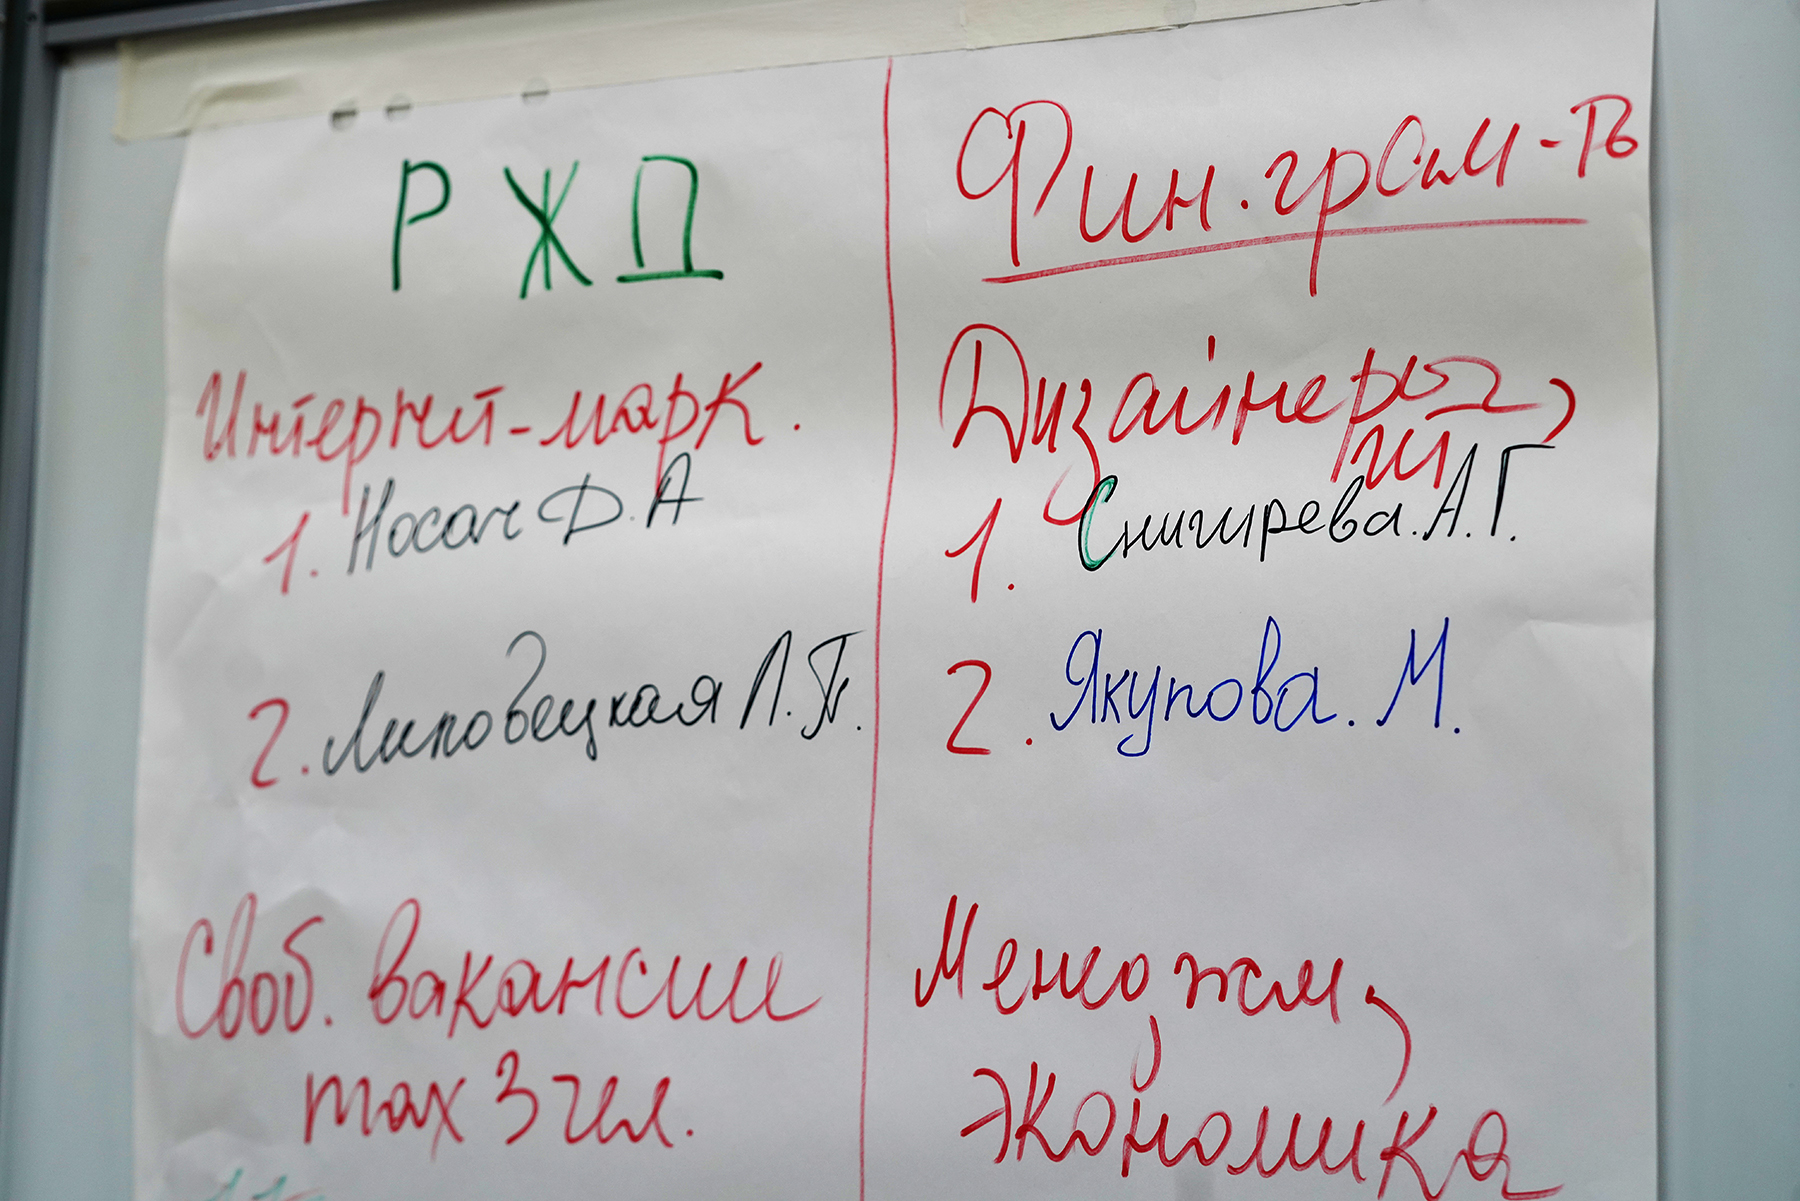 РЖД
Интернет-марк.
1. Носач Д.А
2. Липовецкая Л.П.
Своб. вакансии
max 3 чел.
Фин.грам-ть
Дизайнеры
1. Снигирева.А.Г.
2. Якупова.М.
Менеджм,
Экономика